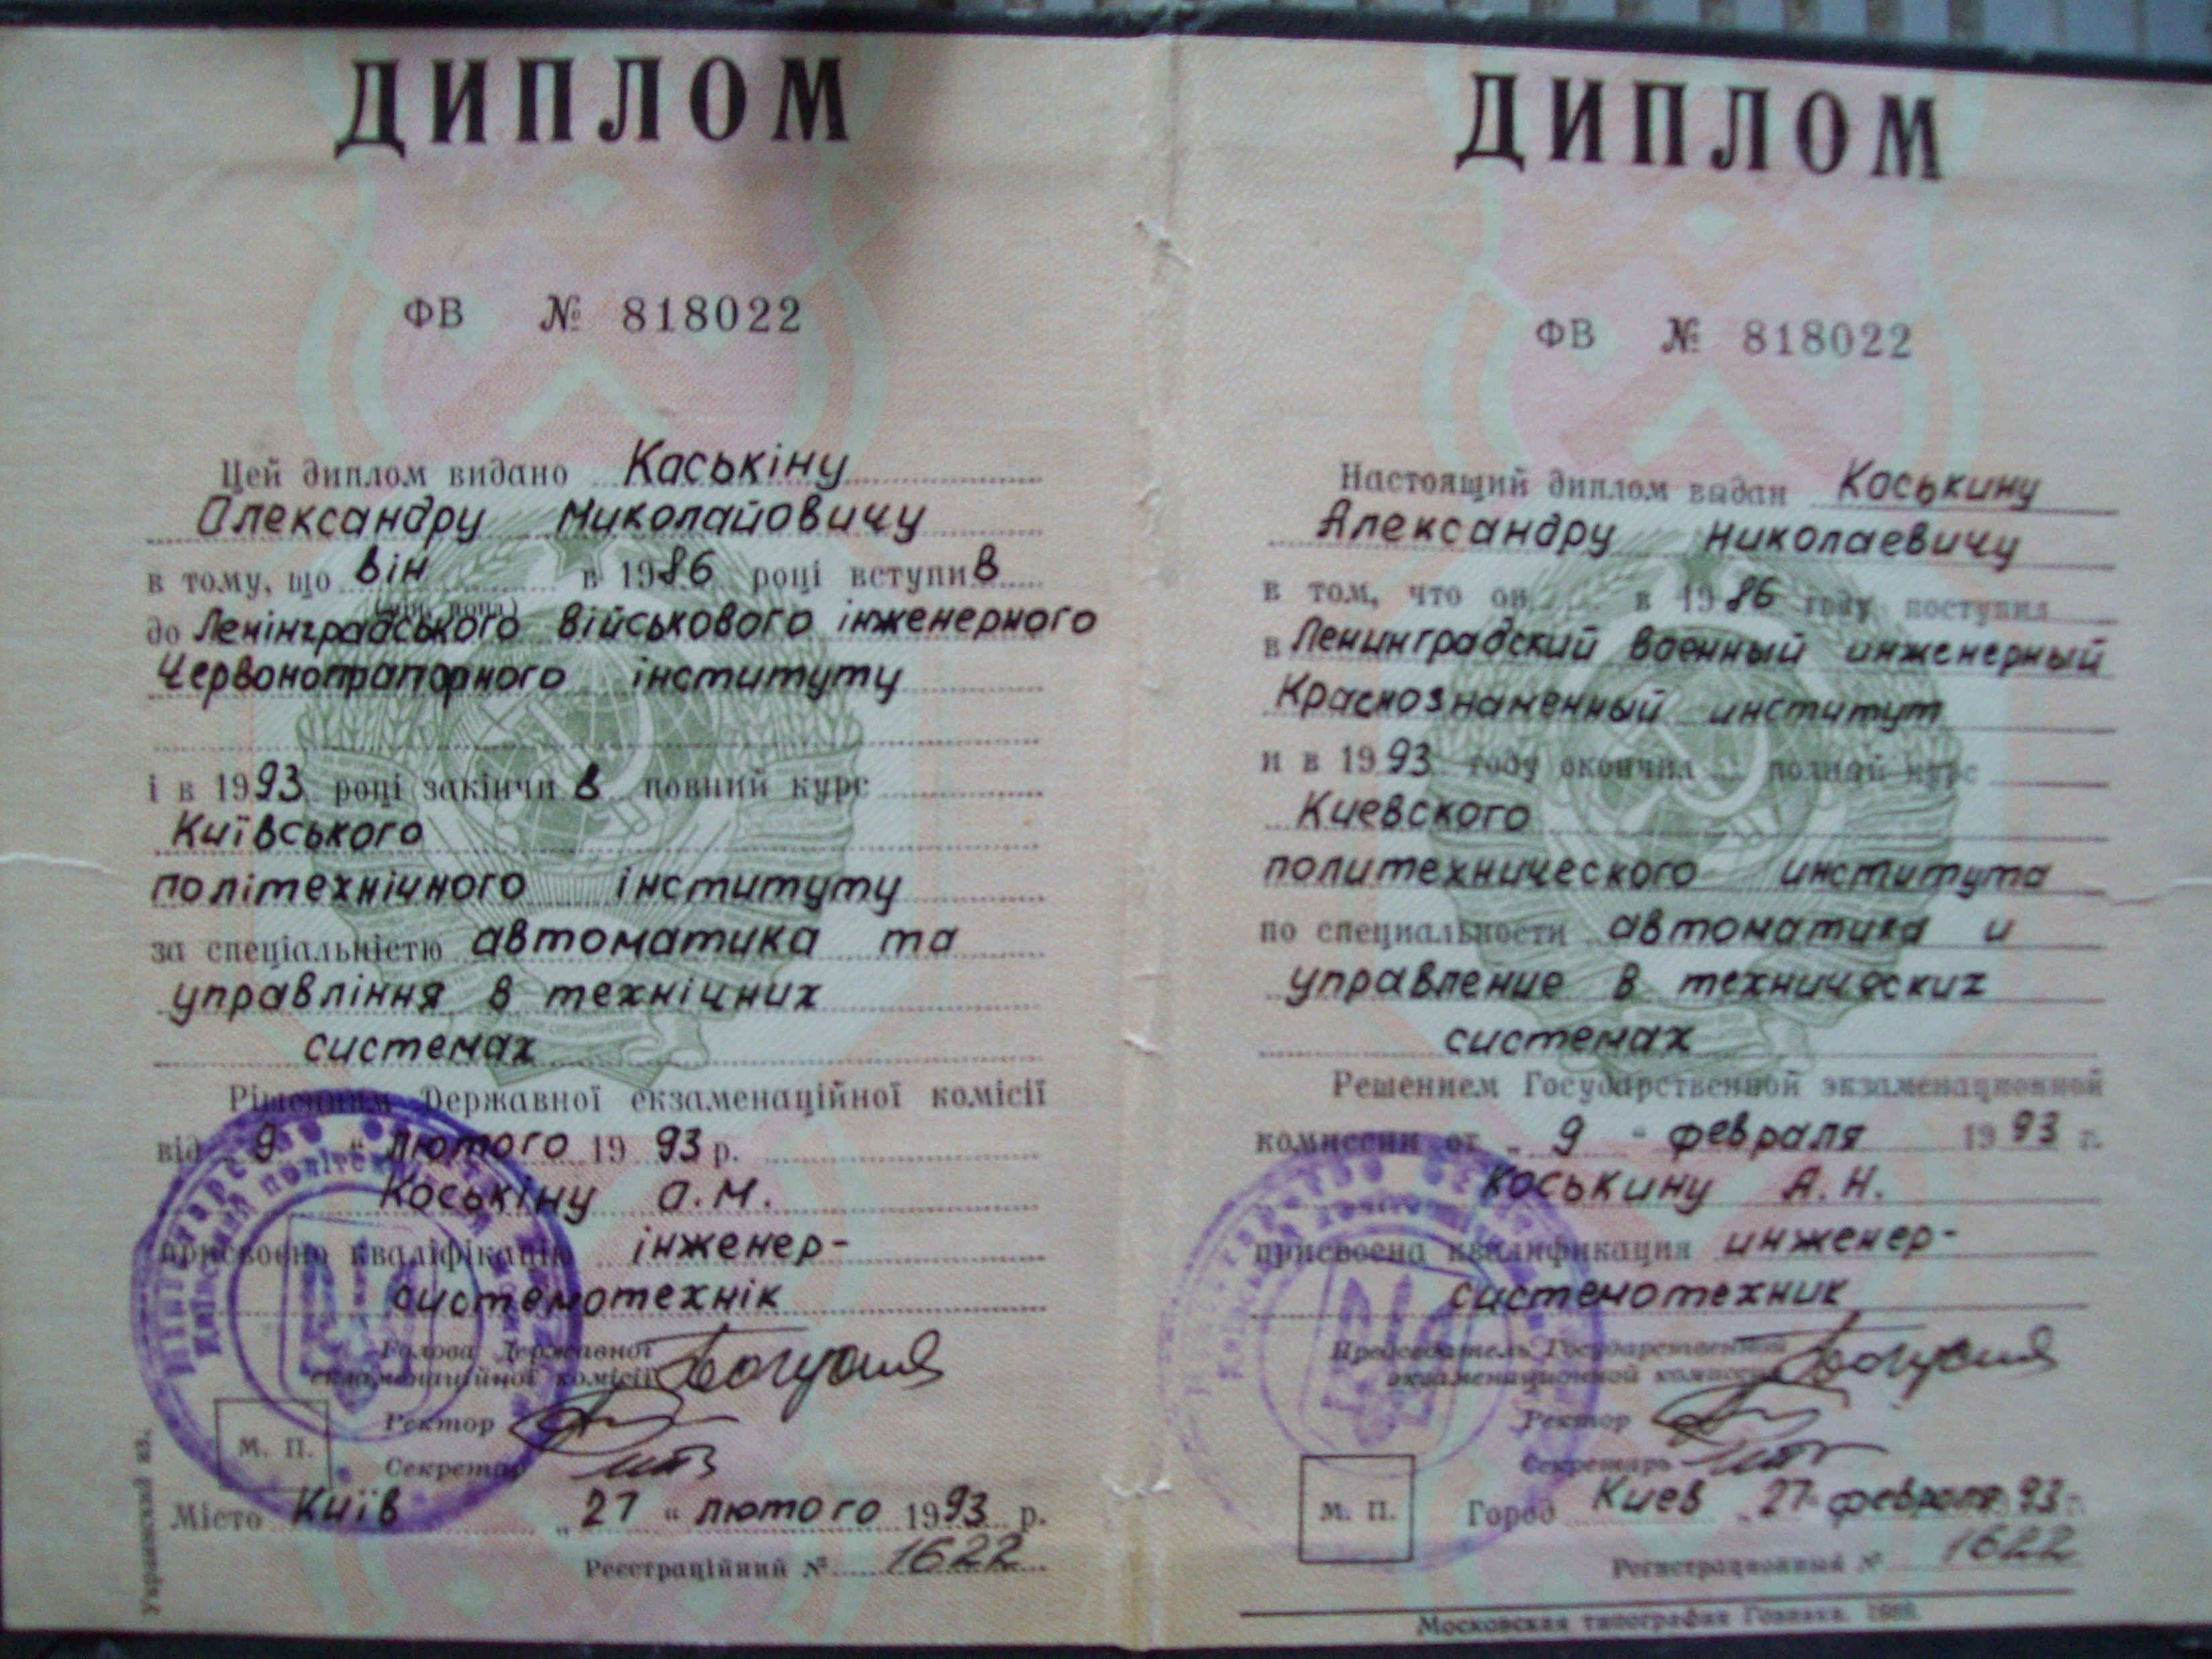 ДИПЛОМ
ФВ № 818022
Цей диплом видано Каськіну
Олександру Миколайовичу
в тому, що він в 1986 році вступив
до Ленінградського військового інженерного
Червонопрапорного інституту
і в 1993 році закінчив повний курс
Київського
політехнічного інституту
за спеціальністю автоматика та
управління в технічних
системах
Рішенням Державної екзаменаційної комісії
від 9 " лютого 1993 р.
Коськіну О.М.
присвоєно кваліфікацію інженер-
системотехнік
Голова Державної
екзаменаційної комісії
Ректор
Секретар
М. П.
Місто Київ „ 27 " лютого 1993 р.
Реєстраційний № 1622
Украинский яз.
ДИПЛОМ
ФВ № 818022
Настоящий диплом выдан Коськину
Александру Николаевичу
в том, что он в 1986 году поступил
в Ленинградский военный инженерный
Краснознаменный институт
и в 1993 году окончил полный курс
Киевского
политехнического института
по специальности автоматика и
управление в технических
системах
Решением Государственной экзаменационной
комиссии от „ 9 " февраля 1993 г.
Коськину А.Н.
присвоена квалификация инженер-
системотехник
Председатель Государственной
экзаменационной комиссии
Ректор
Секретарь
М. П.
Город Киев „ 27 " февраля 1993 г.
Регистрационный № 1622
Московская типография Гознака.